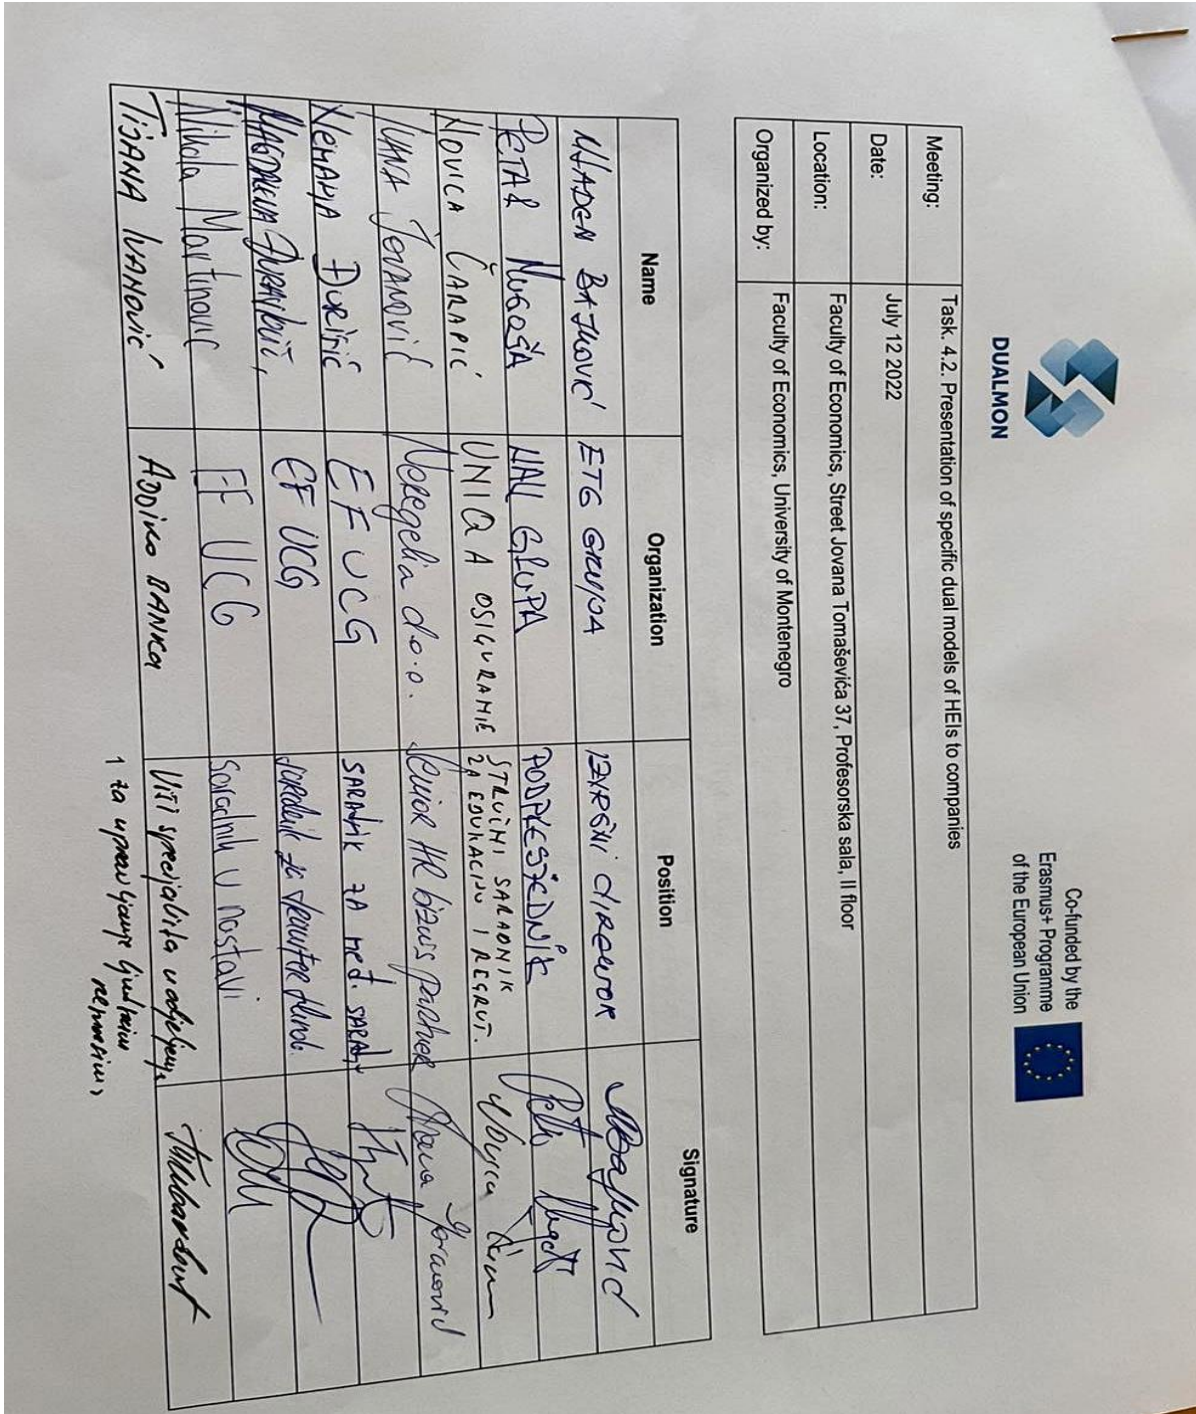 DUALMON
Co-funded by the
Erasmus+ Programme
of the European Union
Meeting: Task. 4.2. Presentation of specific dual models of HEIs to companies
Date: July 12 2022
Location: Faculty of Economics, Street Jovana Tomaševića 37, Profesorska sala, II floor
Organized by: Faculty of Economics, University of Montenegro
Name Organization Position Signature
MLADEN BAJKOVIĆ ETG GRUPA IZVRŠNI DIREKTOR
PETAR NUGOŠA
NOVICA ČARAPIĆ UNIQA OSIGURANJE STRUČNI SARADNIK
ZA EDUKACIJU I REGRUT.
IVANA JOVANOVIĆ Noregelia d.o.o. Senior HR bizniss partner Ivana Jovanović
NEMANJA ĐURIŠIĆ EF UCG SARADNIK ZA MEĐ. SARADNJ
EF UCG Saradnik za
Nikola Martinović EF UCG Saradnik u nastavi
TIJANA IVANOVIĆ ADDIKO BANKA Viši specijalista u odjeljenju
za upravljanje ljudskim
resursima